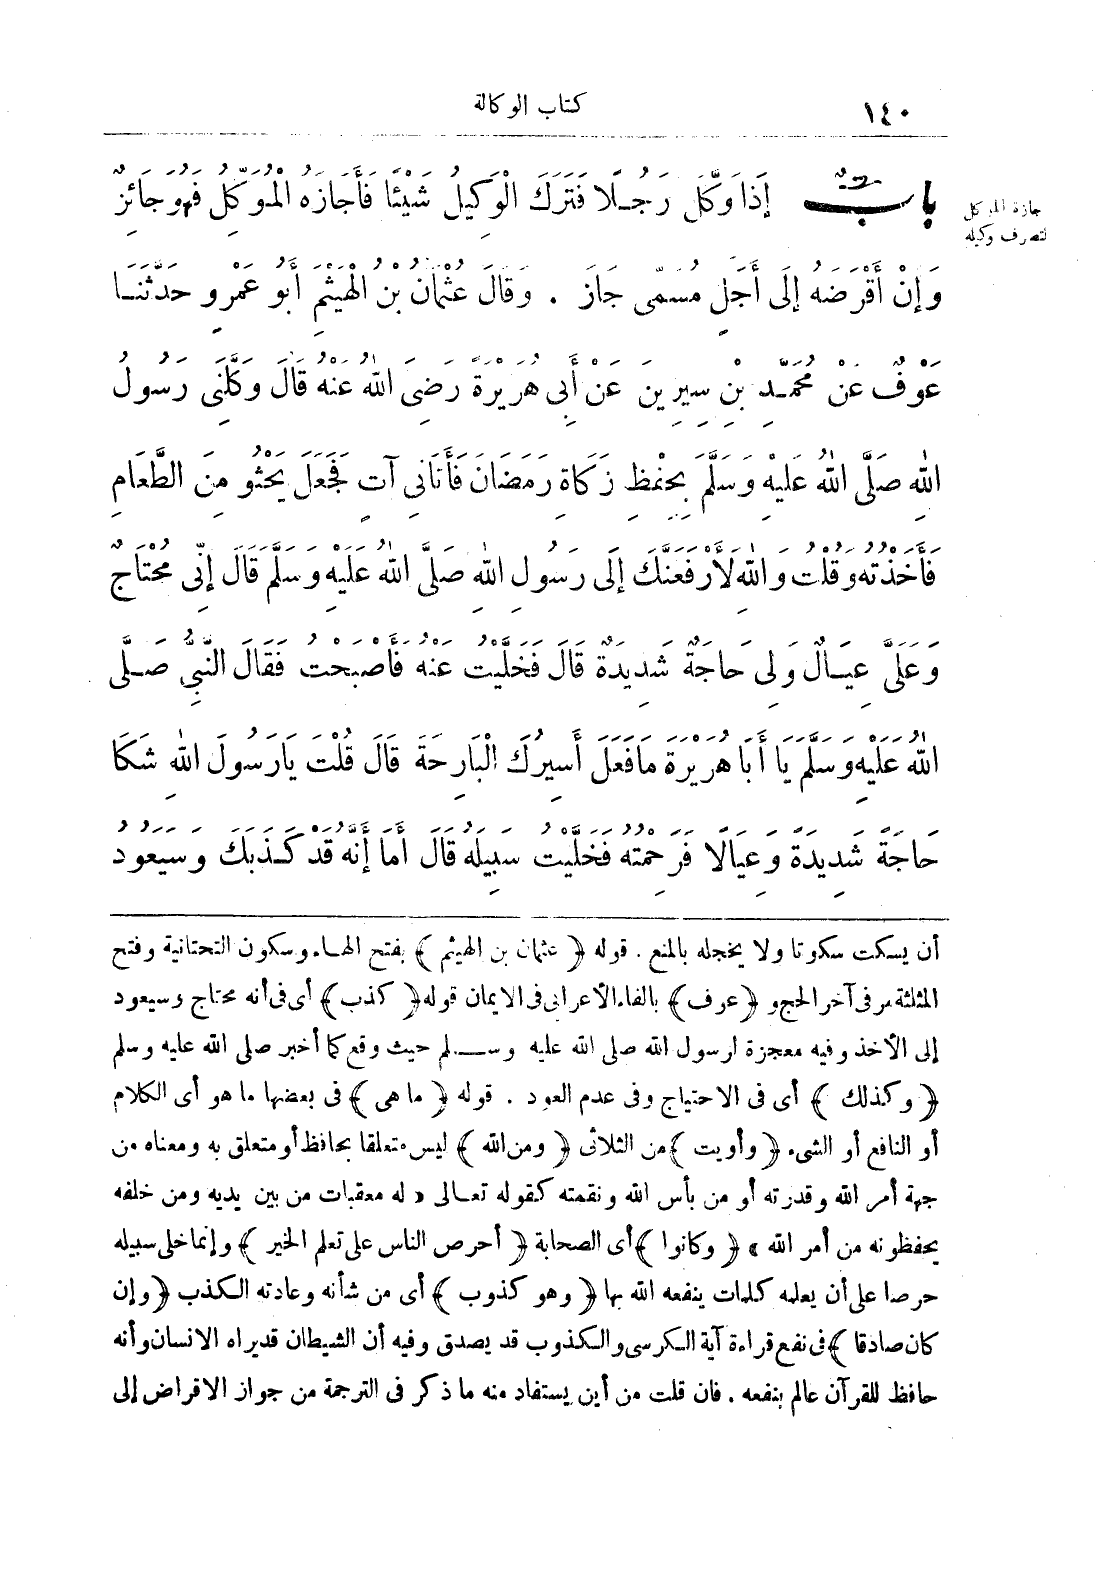 ١٤٠
كتاب الوكالة
جازة الموكل
لتصرف وكيله
بابٌ إِذَا وَكَّلَ رَجُلًا فَتَرَكَ الْوَكِيلُ شَيْئًا فَأَجَازَهُ الْمُوَكِّلُ فَهُوَ جَائِزٌ
وَإِنْ أَقْرَضَهُ إِلَى أَجَلٍ مُسَمًّى جَازَ . وَقَالَ عُثْمَانُ بْنُ الْهَيْثَمِ أَبُو عَمْرٍو حَدَّثَنَا
عَوْفٌ عَنْ مُحَمَّدِ بْنِ سِيرِينَ عَنْ أَبِى هُرَيْرَةَ رَضِىَ اللهُ عَنْهُ قَالَ وَكَّلَنِى رَسُولُ
اللهِ صَلَّى اللهُ عَلَيْهِ وَسَلَّمَ بِحِفْظِ زَكَاةِ رَمَضَانَ فَأَتَانِى آتٍ فَجَعَلَ يَحْثُو مِنَ الطَّعَامِ
فَأَخَذْتُهُ وَقُلْتُ وَاللهِ لَأَرْفَعَنَّكَ إِلَى رَسُولِ اللهِ صَلَّى اللهُ عَلَيْهِ وَسَلَّمَ قَالَ إِنِّى مُحْتَاجٌ
وَعَلَىَّ عِيَالٌ وَلِى حَاجَةٌ شَدِيدَةٌ قَالَ فَخَلَّيْتُ عَنْهُ فَأَصْبَحْتُ فَقَالَ النَّبِىُّ صَلَّى
اللهُ عَلَيْهِ وَسَلَّمَ يَا أَبَا هُرَيْرَةَ مَا فَعَلَ أَسِيرُكَ الْبَارِحَةَ قَالَ قُلْتُ يَارَسُولَ اللهِ شَكَا
حَاجَةً شَدِيدَةً وَعِيَالًا فَرَحِمْتُهُ فَخَلَّيْتُ سَبِيلَهُ قَالَ أَمَا إِنَّهُ قَدْ كَذَبَكَ وَسَيَعُودُ
أن يسكت سكوتا ولا يخجله بالمنع . قوله ﴿عثمان بن الهيثم﴾ بفتح الهاء وسكون التحتانية وفتح
المثلثة مر فى آخر الحج و﴿عوف﴾ بالفاء الأعرابى فى الايمان قوله ﴿كذب﴾ أى فى أنه محتاج وسيعود
إلى الأخذ وفيه معجزة لرسول الله صلى الله عليه وسلم حيث وقع كما أخبر صلى الله عليه وسلم
﴿وكذلك﴾ أى فى الاحتياج وفى عدم العود . قوله ﴿ما هى﴾ فى بعضها ما هو أى الكلام
أو النافع أو الشىء ﴿وأويت﴾ من الثلاثى ﴿ومن الله﴾ ليس متعلقا بحافظ أو متعلق به ومعناه من
جهة أمر الله وقدرته أو من بأس الله ونقمته كقوله تعالى «له معقبات من بين يديه ومن خلفه
يحفظونه من أمر الله» ﴿وكانوا﴾ أى الصحابة ﴿أحرص الناس على تعلم الخير﴾ وإنما خلى سبيله
حرصا على أن يعلمه كلمات ينفعه الله بها ﴿وهو كذوب﴾ أى من شأنه وعادته الكذب ﴿وإن
كان صادقا﴾ فى نفع قراءة آية الكرسى والكذوب قد يصدق وفيه أن الشيطان قد يراه الانسان وأنه
حافظ للقرآن عالم بنفعه . فان قلت من أين يستفاد منه ما ذكر فى الترجمة من جواز الاقراض إلى